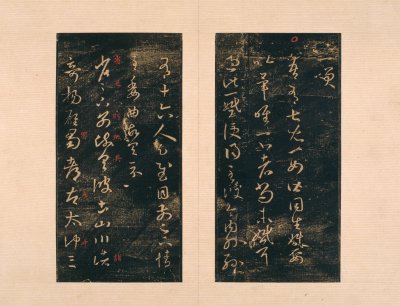 吾有七兒一女皆同生婚娶
以畢唯一小者尚未婚耳
過此一婚便得至彼今內外孫
有十六人足慰目前足下情
至委曲故具示
省足下別疏具彼土山川諸
奇揚雄蜀都左太沖三